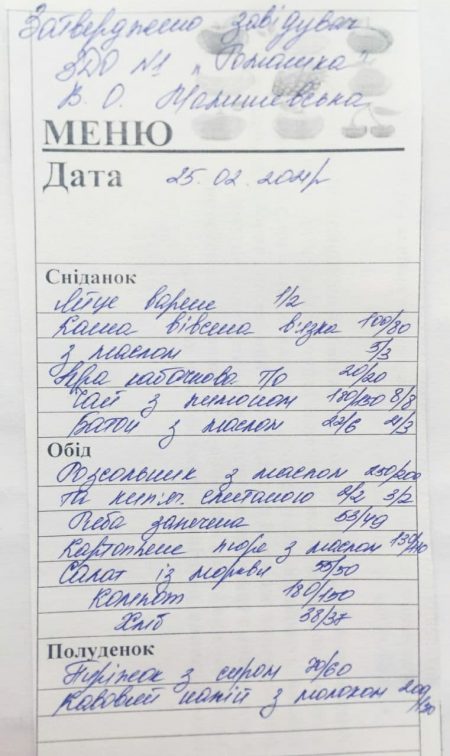 Затверджено завідувач
ЗДО №1 "Ромашка"
В. О. Малишевська
МЕНЮ
Дата 25. 02. 2021р
Сніданок
Яйце варене 1/2
Каша вівсяна в'язка 100/80
з маслом 5/3
Ікра кабачкова т/о 20/20
Чай з лимоном 180/150 8/8
Батон з маслом 22/6 21/3
Обід
Розсольник з маслом 250/200
та кип'ят. сметаною 2/2 3/2
Риба запечена 53/49
Картопляне пюре з маслом 130/110
Салат із моркви 55/50
Компот 180/150
Хліб 38/37
Полуденок
Пиріжок з сиром 70/60
Кавовий напій з молоком 200/150